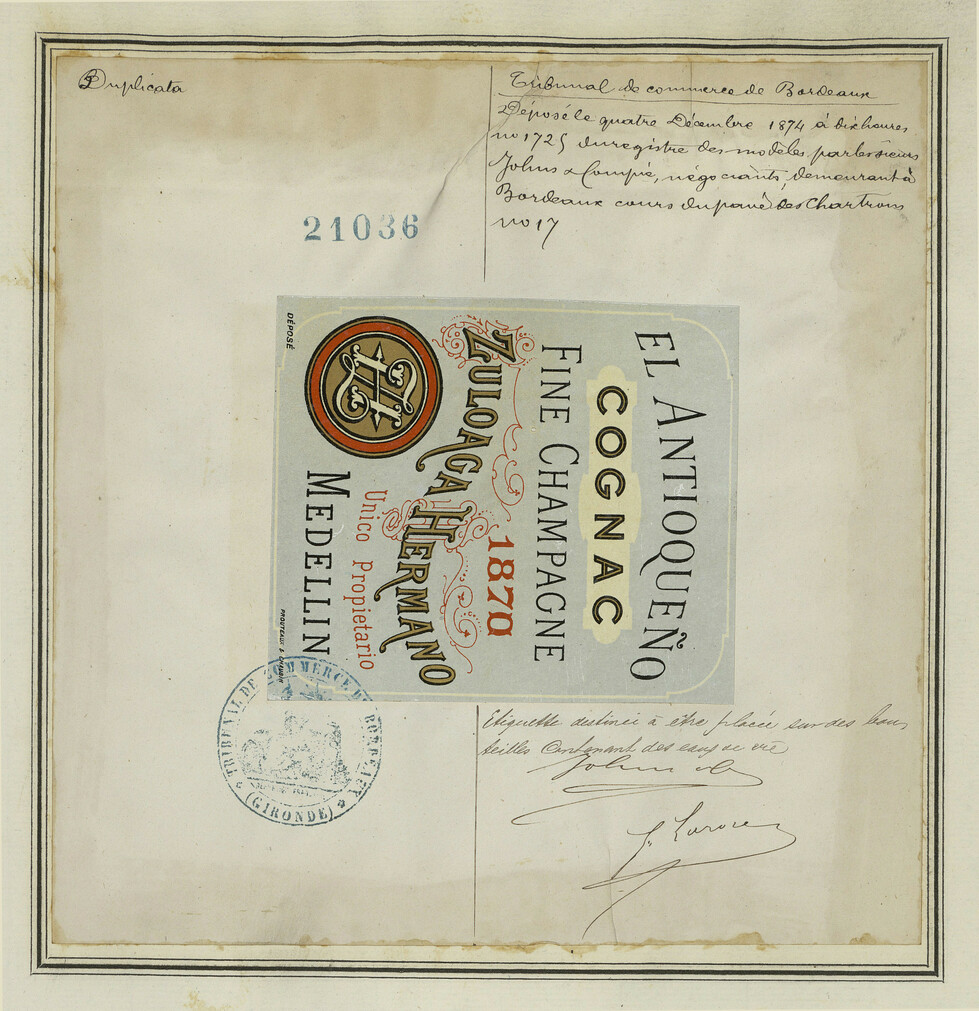 Duplicata
Tribunal de commerce de Bordeaux
Déposé le quatre Décembre 1874 à dix heures
no 1725 du registre des modèles par les sieurs
Johns & Compie, négociants, demeurant à
Bordeaux cours du pavé des Chartrons
no 17
21036
EL ANTIOQUEÑO
COGNAC
FINE CHAMPAGNE
1870
ZULOAGA HERMANO
Unico Propietario
MEDELLIN
DÉPOSÉ
PROUTEAUX &
TRIBUNAL DE COMMERCE DE BORDEAUX
(GIRONDE)
Etiquette destinée à être placée sur des bou
teilles contenant des eaux de vie
Johns